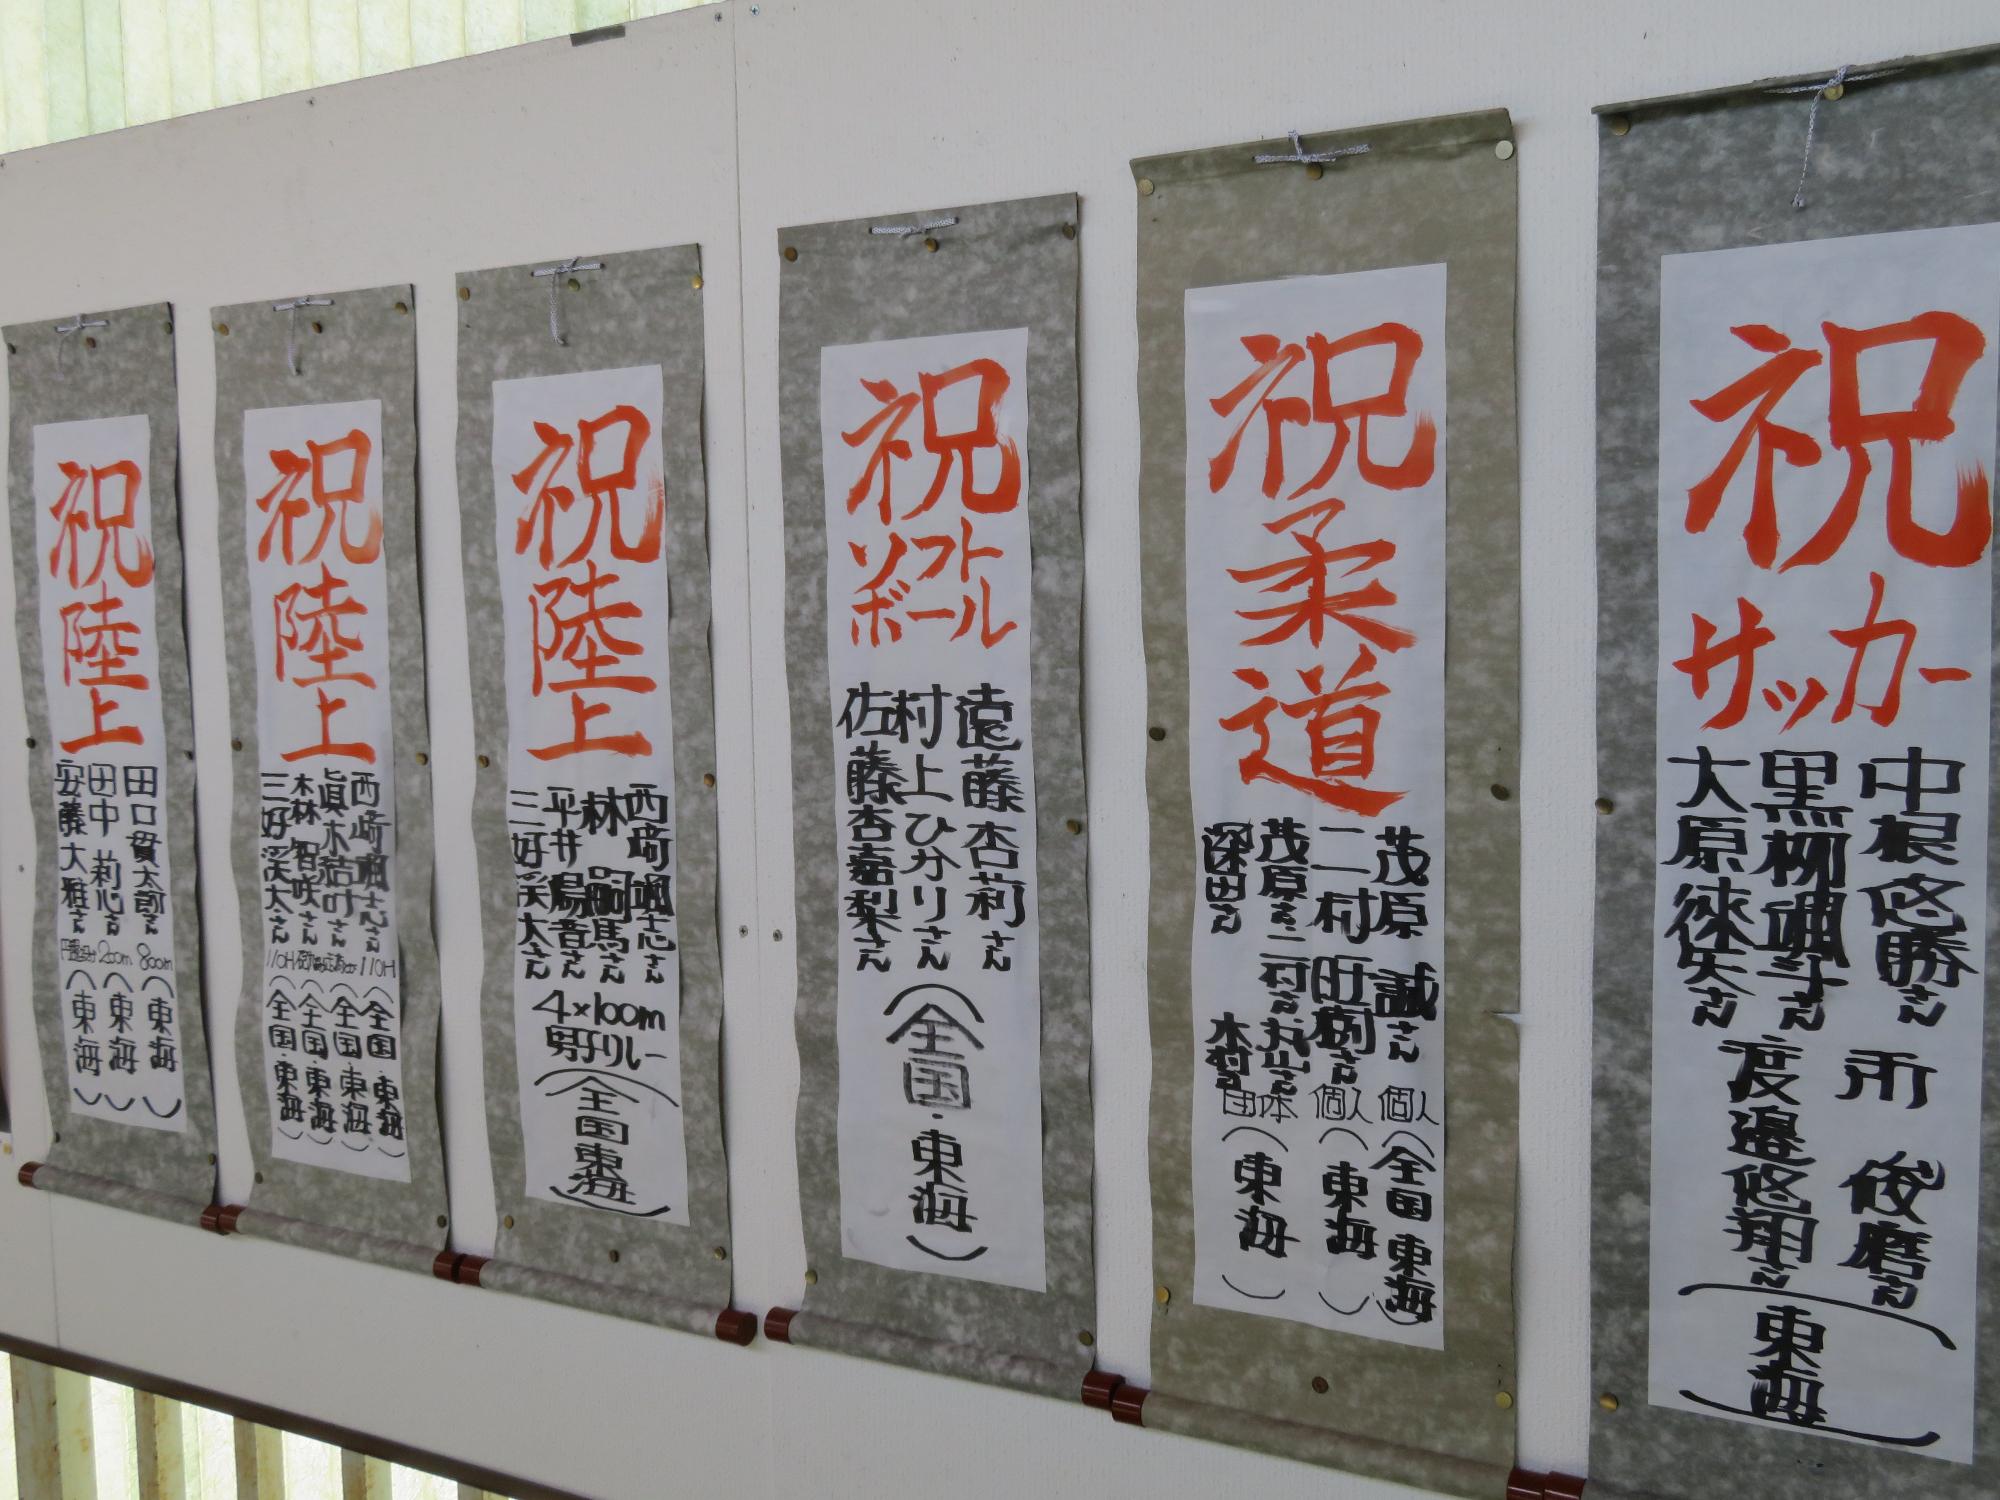 祝
陸上
田口貫太郎さん
800m
(東海)
田中 莉心さん
200m
(東海)
安藤大雅さん
(東海)
祝
陸上
西﨑颯志さん
110H
(全国・東海)
眞木結叶さん
(全国・東海)
林 智咲さん
(全国・東海)
三好渓太さん
110H
(全国・東海)
祝
陸上
西﨑颯志さん
林 嗣馬さん
平井陽音さん
三好渓太さん
4×100m
男子リレー
(全国東海)
祝
ソフト
ボール
遠藤杏莉さん
村上ひかりさん
佐藤杏嘉梨さん
(全国・東海)
祝
柔道
茂原 誠さん
個人
(全国東海)
二村 旺樹さん
個人
(東海)
茂原さん 二村さん 丸山さん
深田さん 木村さん
団体
(東海)
祝
サッカー
中根悠勝さん 所 俊磨さん
黒柳颯斗さん 渡邉悠翔さん
大原徠矢さん
(東海)